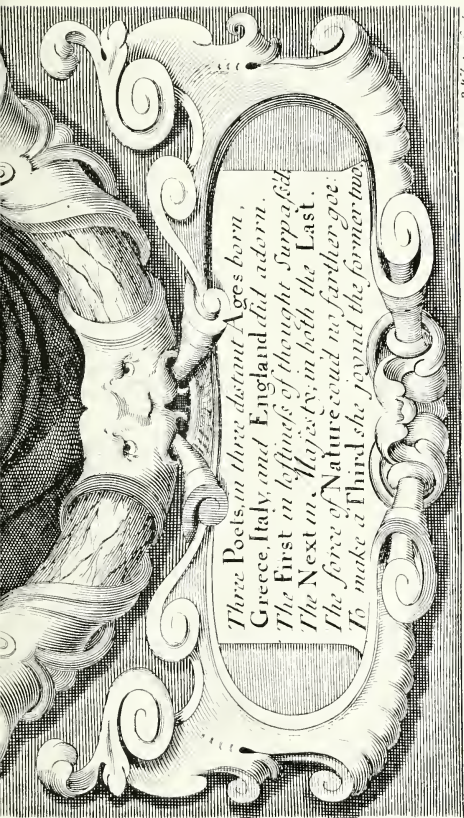 Three Poets, in three distant Ages born,
Greece, Italy, and England did adorn.
The First in loftiness of thought Surpass'd,
The Next in Majesty; in both the Last.
The force of Nature coud no farther goe:
To make a Third she joynd the former two.